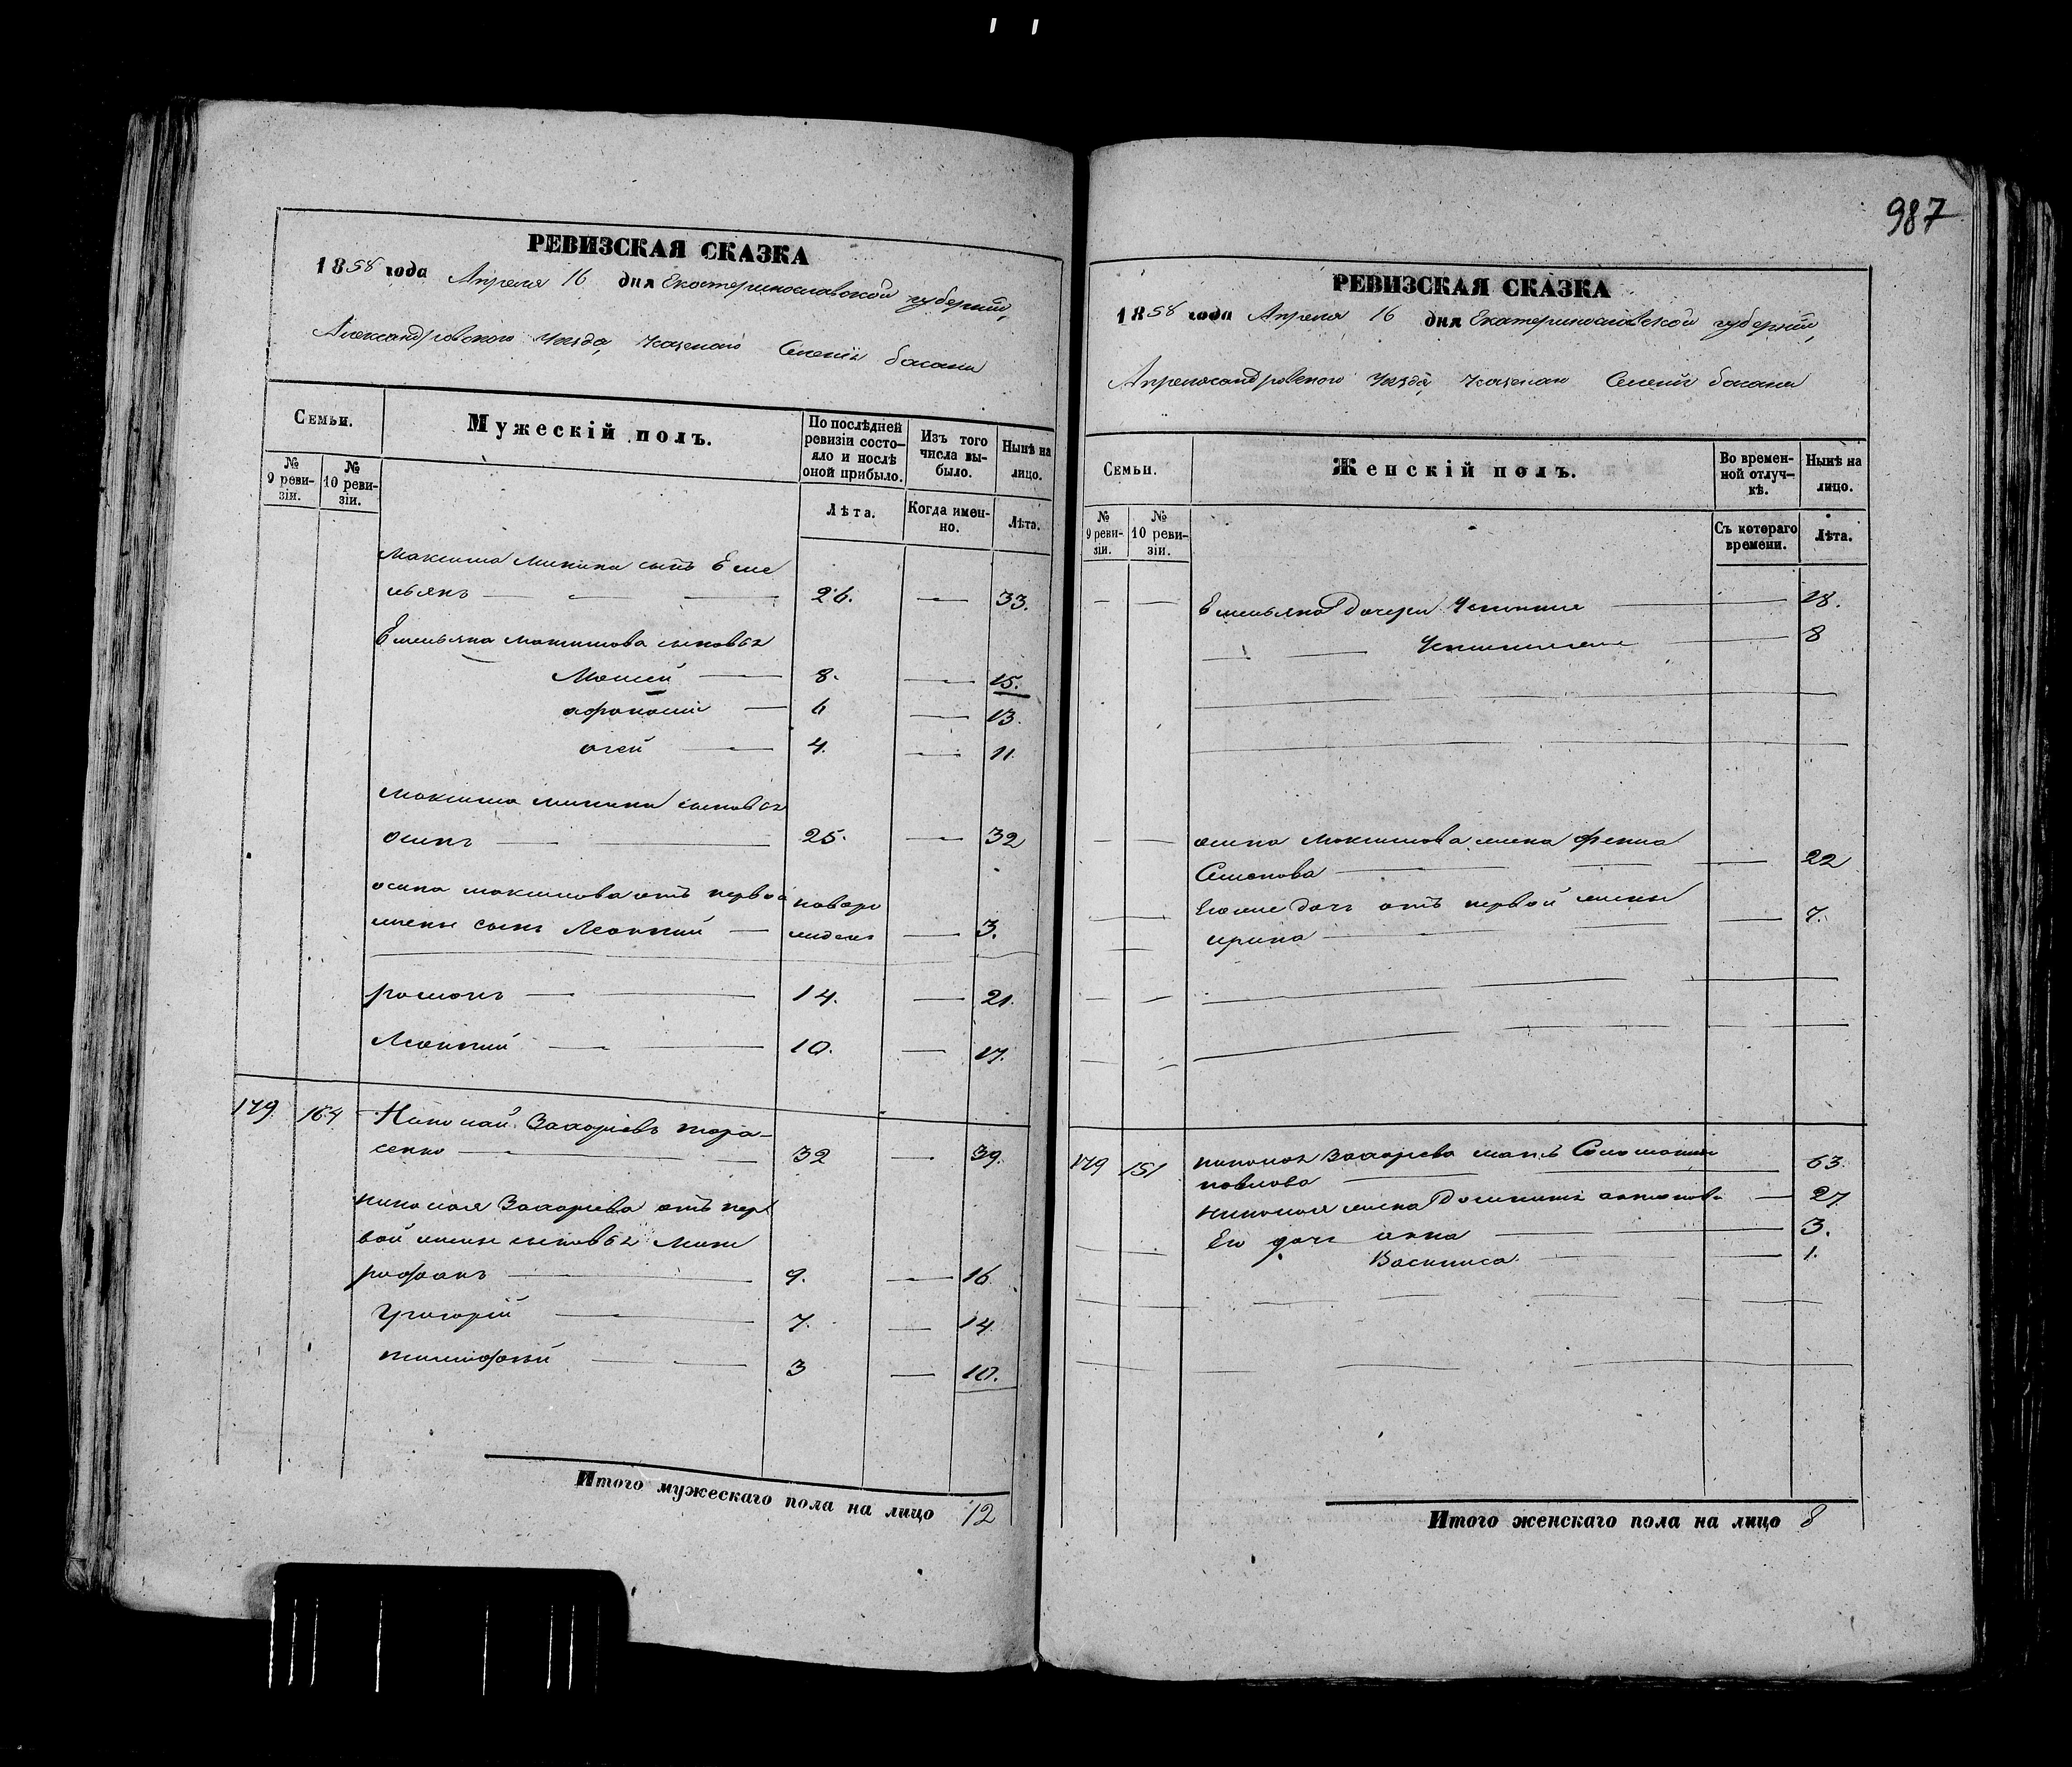 987
РЕВИЗСКАЯ СКАЗКА
1858 года Апреля 16 дня Екатеринославской губернии,
Александровского уезда казенного Селения басани
Семьи.
Мужескій полъ.
По послѣдней ревизіи состояло и послѣ оной прибыло.
Изъ того числа выбыло.
Нынѣ на лицо.
№ 9 ревизіи.
№ 10 ревизіи.
Лѣта.
Когда именно.
Лѣта.
Максима Минина сынъ Еме
льянъ 26. 33.
Емельяна максимова сыновья
Моисей 8. 15.
афанасий 6 13.
агей 4. 11.
максима минина сыновья
осипъ 25. 32
осипа максимова отъ первой новоро
жены сынъ Леонтий жденъ 3.
романъ 14. 21.
Леонтий 10. 17.
179. 164 Николай Захарiевъ тара-
сенко 32 39.
николая Захарiева отъ пер
вой жены сыновья Мит
рофанъ 9. 16.
Григорій 7. 14.
тимофей 3 10.
Итого мужескаго пола на лицо 12
РЕВИЗСКАЯ СКАЗКА
1858 года Апреля 16 дня Екатеринославской губернии,
уезда Селения басани
Семьи.
Женскій полъ.
Во временной отлучкѣ.
Нынѣ на лицо.
№ 9 ревизіи.
№ 10 ревизіи.
Съ котораго времени.
Лѣта.
Емельяна дочери 18.
8
осипа максимова жена
Семенова 22
Его же дочь отъ первой жены
ирина 7.
179 151 николая Захарiева мать Соломония
павлова 63.
николая жена антонова 27
Его дочь анна 3.
Василиса 1.
Итого женскаго пола на лицо 8